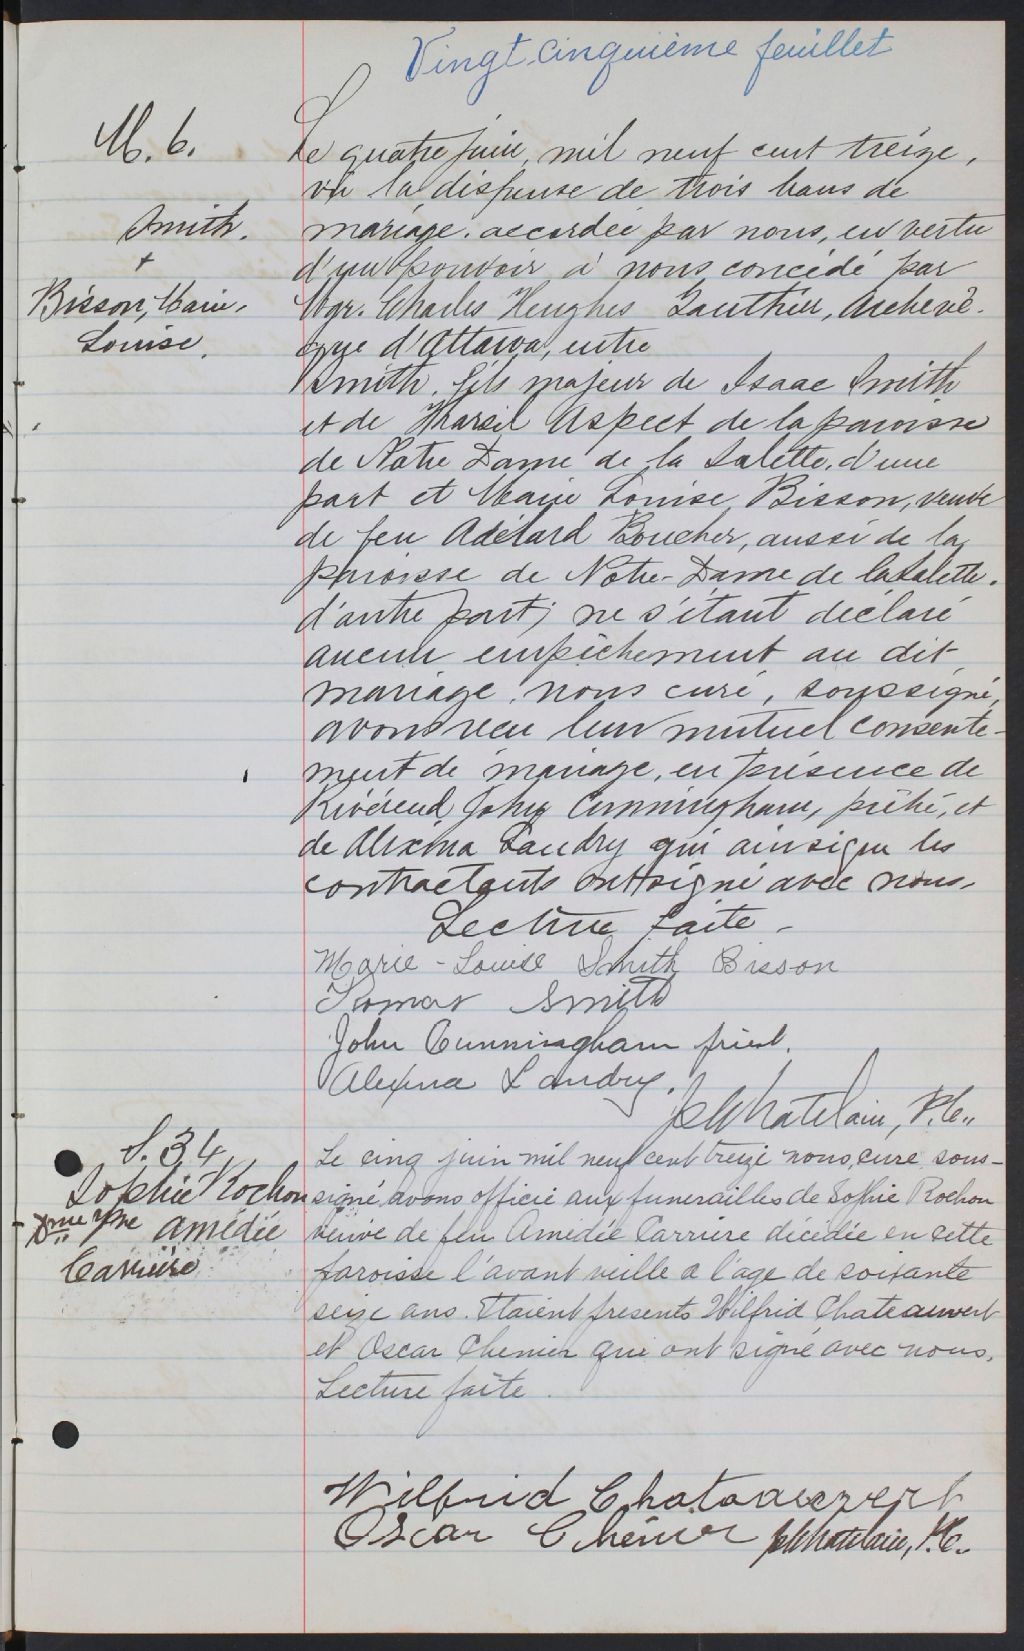 Vingt-cinquième feuillet
M. 6.
Smith.
+
Bisson, Marie-
Louise.
Le quatre juin, mil neuf cent treize,
vu la dispense de trois bans de
mariage accordée par nous, en vertu
d'un pouvoir à nous concédé par
Mgr. Charles Heughes Gauthier, Archevê-
que d'Ottawa, entre
Smith, fils majeur de Isaac Smith
et de Aspect de la paroisse
de Notre Dame de la Salette, d'une
part et Marie Louise Bisson, veuve
de feu Adelard Boucher, aussi de la
paroisse de Notre-Dame de la Salette.
d'autre part; ne s'étant déclaré
aucun empêchement au dit
mariage, nous curé, soussigné,
avons reçu leur mutuel consente-
ment de mariage, en présence de
Révérend John Cunningham, prêtre, et
de Alexina Landry qui ainsi que les
contractants ont signé avec nous.
Lecture faite -
Marie-Louise Smith Bisson
Thomas Smith
John Cunningham priest.
Alexina Landry.
Chatelain, P.C.
S. 34
Sophie Rochon
Dme Vve Amédée
Carrière
Le cinq juin mil neuf cent treize nous, curé sous-
signé, avons officié aux funerailles de Sophie Rochon
veuve de feu Amédée Carrière décédée en cette
paroisse l'avant veille a l'age de soixante
seize ans. Etaient presents Wilfrid Chateauvert
et Oscar Chenier qui ont signé avec nous.
Lecture faite.
Wilfrid Chataauvert
Oscar Chénier Chatelain, P.C.